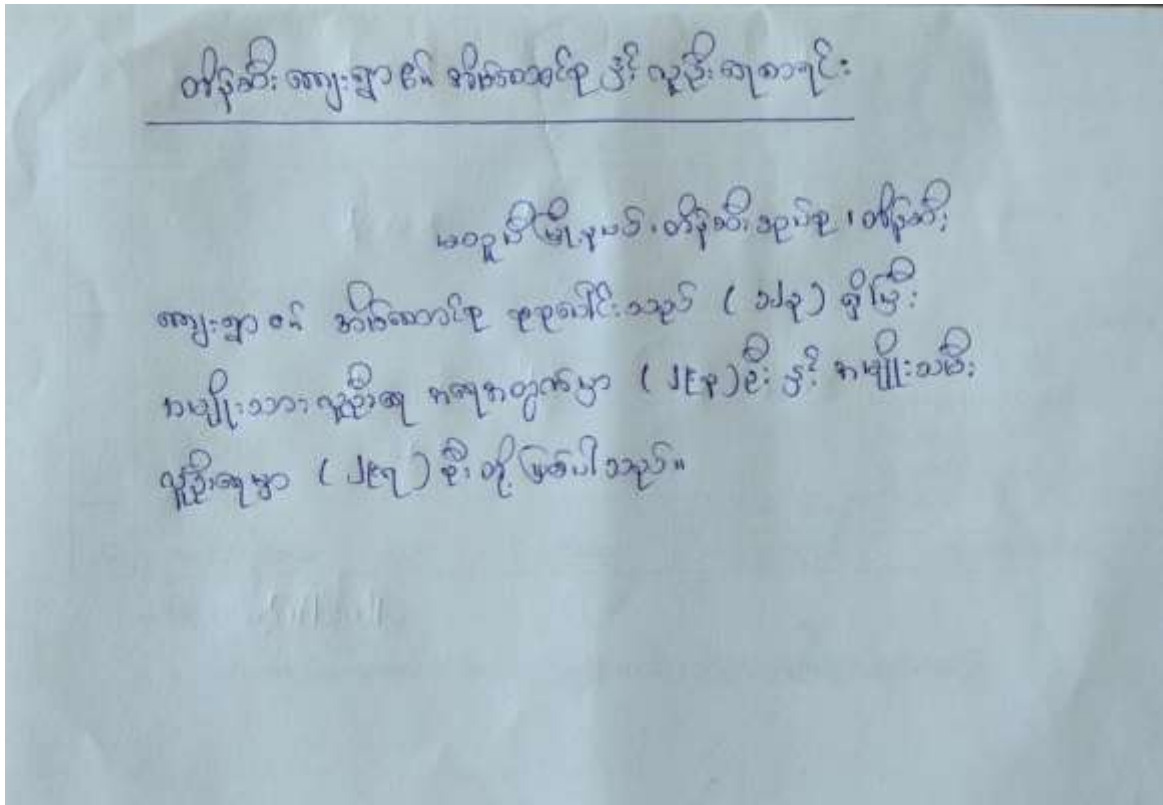 တိန်ဆီး ကျေးရွာ ၏ အိမ်ထောင်စု နှင့် လူဦးရေစာရင်း
မတူပီမြို့နယ်၊ တိန်ဆီးအုပ်စု၊ တိန်ဆီး
ကျေးရွာ ၏ အိမ်ထောင်စု စုစုပေါင်းသည် ( ၁၂၃ ) ရှိပြီး
အမျိုးသားလူဦးရေ အရေအတွက်မှာ ( ၂၄၃ ) ဦး နှင့် အမျိုးသမီး
လူဦးရေမှာ ( ၂၄၇ ) ဦး တို့ ဖြစ်ပါသည်။